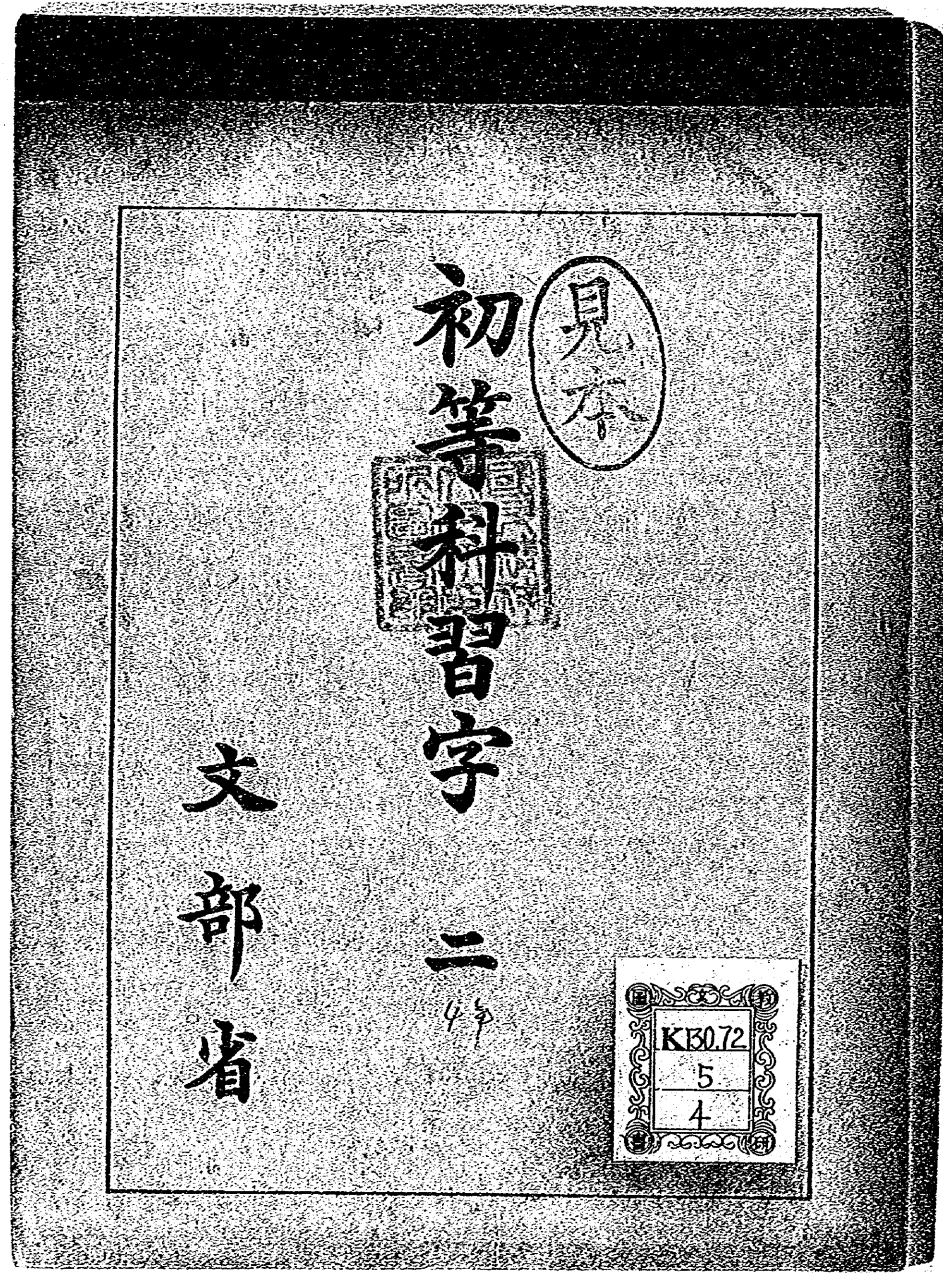 見本
初等科習字 二
4年
文部省
K130.72
5
4